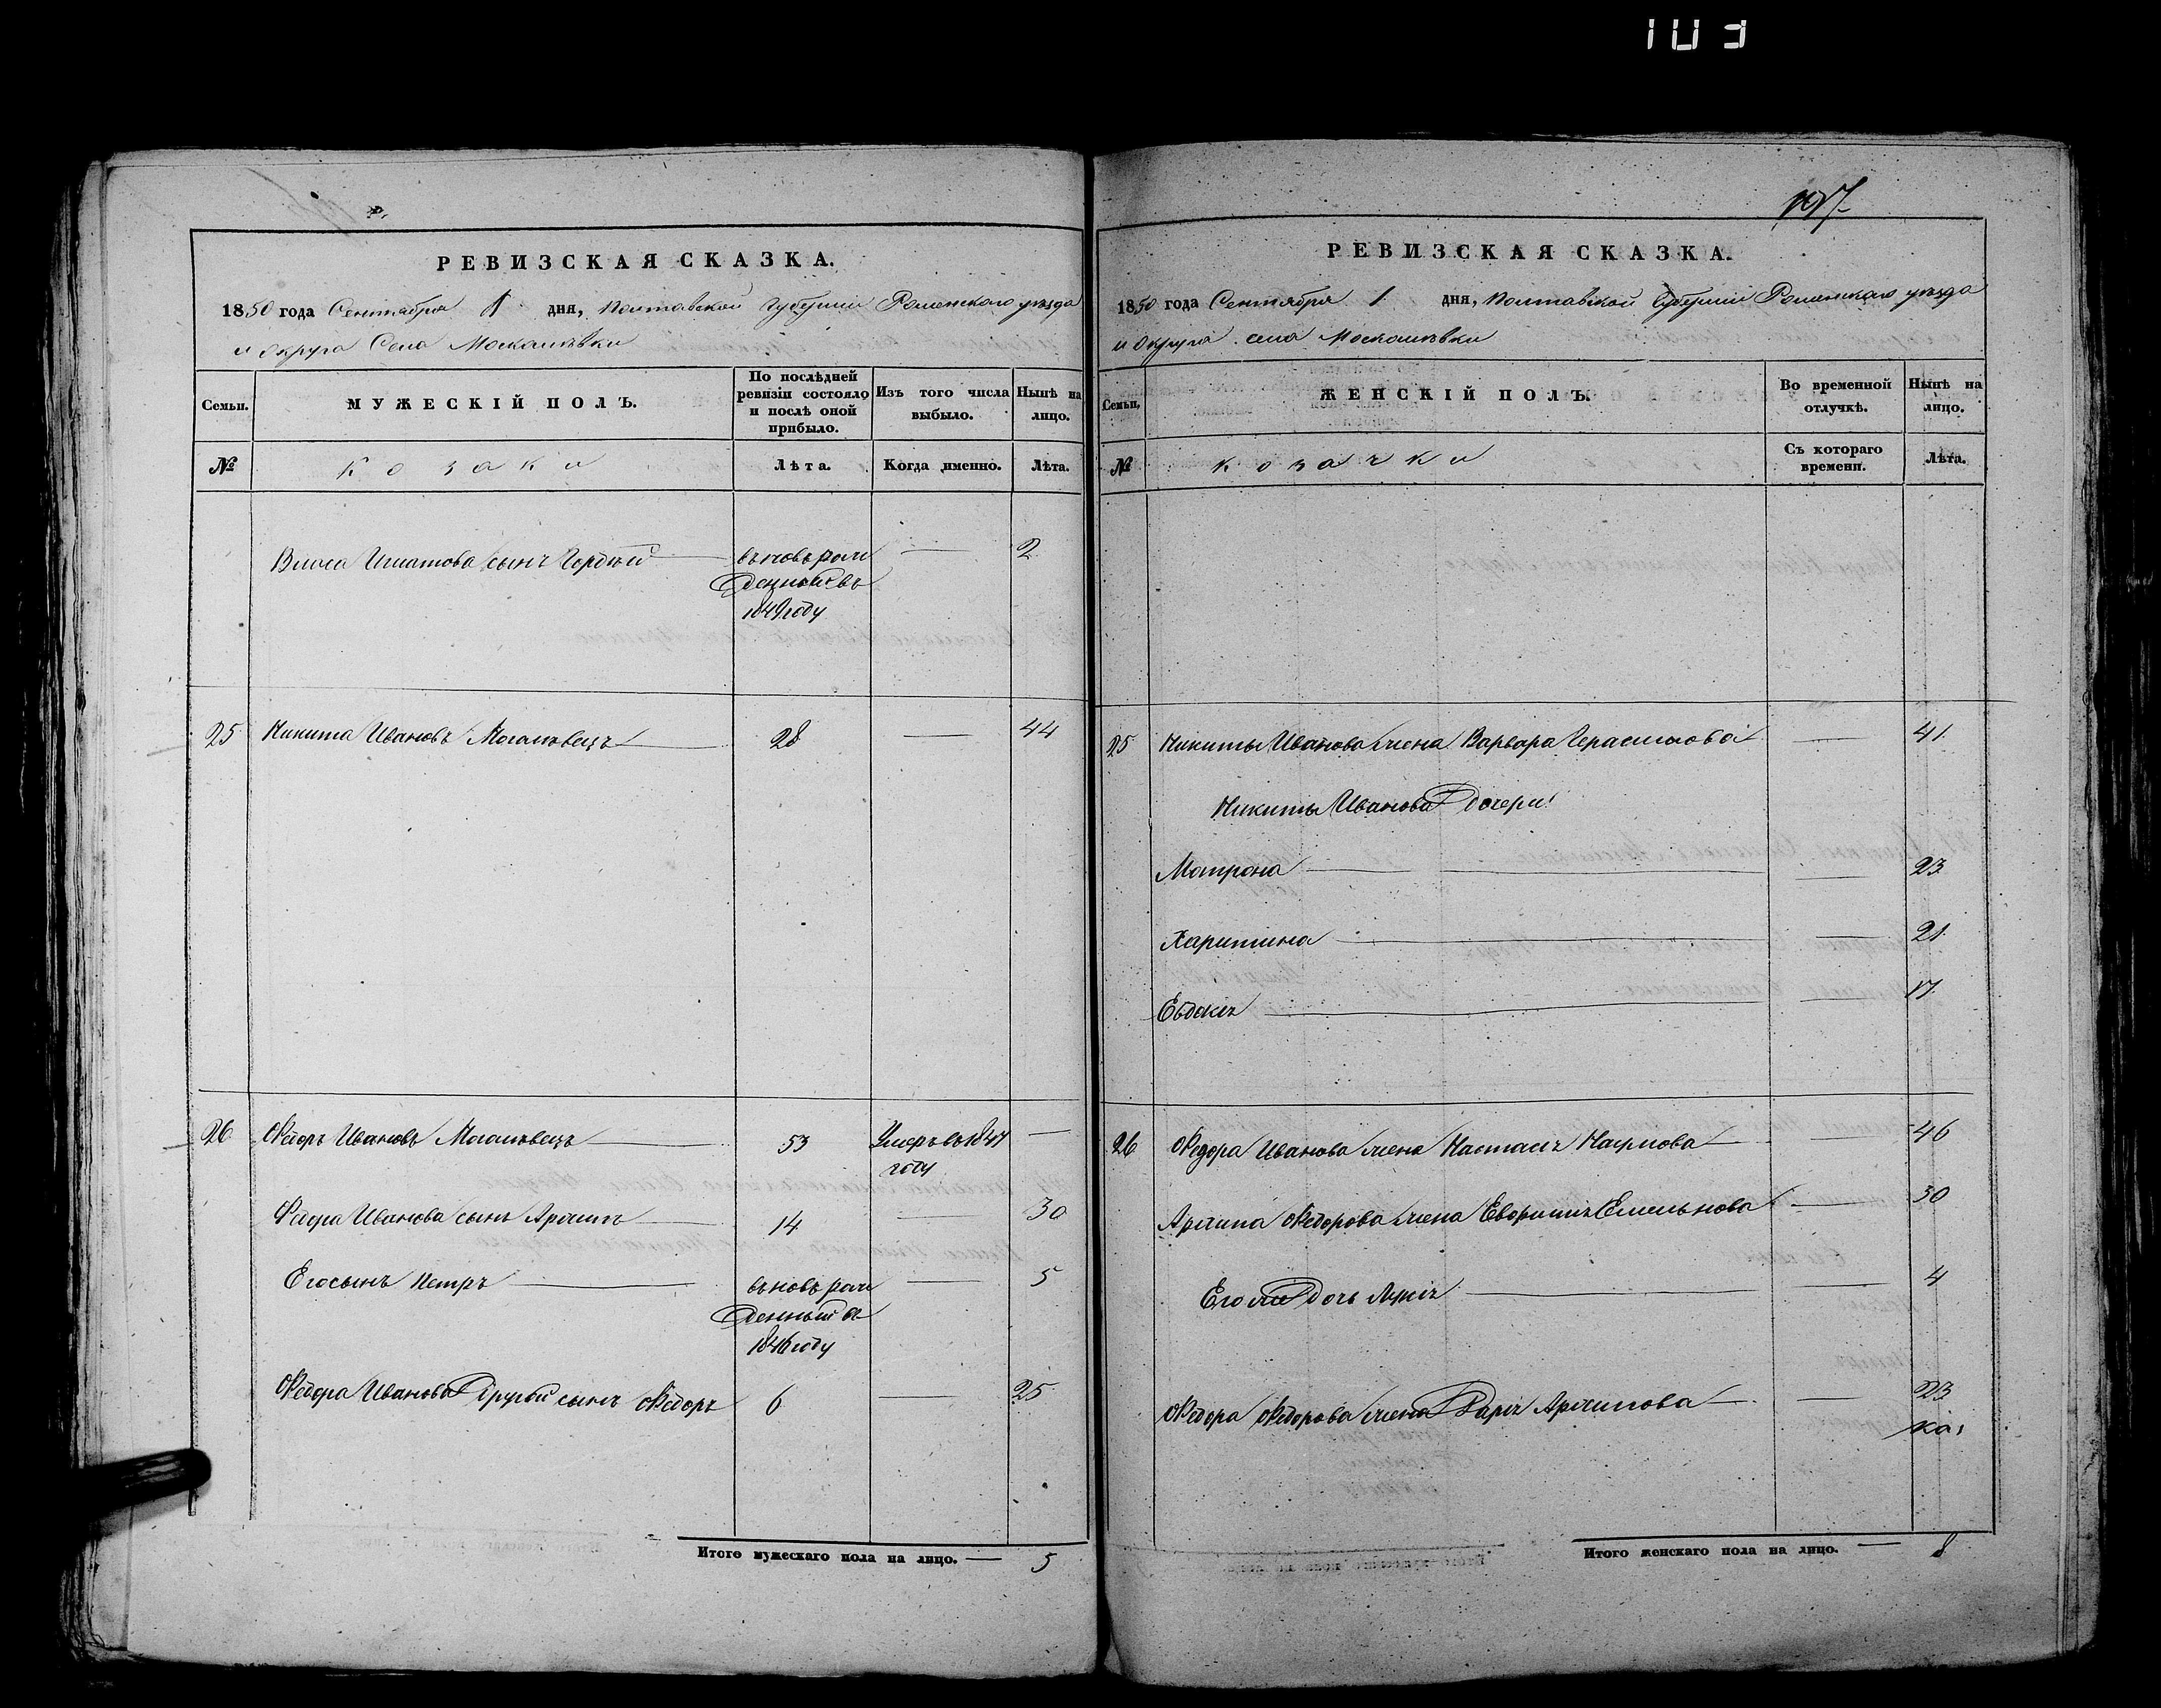 103
107
РЕВИЗСКАЯ СКАЗКА.
1850 года Сентября 1 дня, Полтавской Губернии Роменского уезда
и округа Села Москалѣвки
Семьи.
МУЖЕСКІЙ ПОЛЪ.
По послѣдней ревизіи состояло и послѣ оной прибыло.
Изъ того числа выбыло.
Нынѣ на лицо.
№
Козаки
Лѣта.
Когда именно.
Лѣта.
Власа Игнатова сынъ Гордѣй — вновь рож — 2
денный въ
1849 году
25 Никита Ивановъ 28 — 44
26 Федоръ Ивановъ 53 Умеръ въ 1844 —
году
Федора Иванова сынъ Архипъ 14 — 30
Его сынъ Петръ — вновь рож — 5
денный въ
1846 году
Федора Иванова другой сынъ Федоръ 6 — 25
Итого мужескаго пола на лицо. — 5
РЕВИЗСКАЯ СКАЗКА.
1850 года Сентября 1 дня, Полтавской Губернии Роменского уезда
и округа села Москалѣвки
Семьи.
ЖЕНСКІЙ ПОЛЪ.
Во временной отлучкѣ.
Нынѣ на лицо.
№
Козачки
Съ котораго времени.
Лѣта.
25 Никиты Иванова жена Варвара Герасимова — 41
Никиты Иванова дочери
Матрона — 23
Харитина — 21
Евдокія — 17
26 Федора Иванова жена Настасія Наумова — 46
Архипа Федорова жена Емельянова — 30
Его же дочь — 4
Федора Федорова жена Дарія Архипова — 23
Итого женскаго пола на лицо. — 8